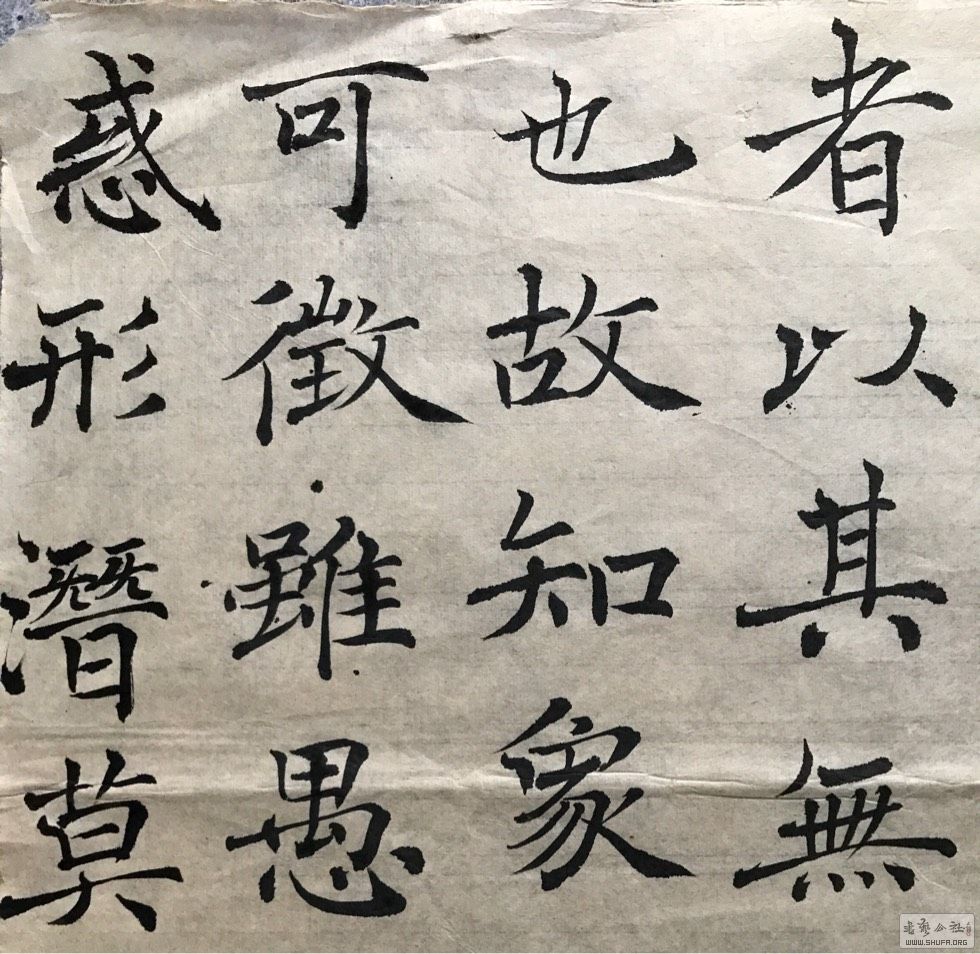 者以其無
也故知象
可徵雖愚
惑形潛莫
書藝公社
WWW.SHUFA.ORG